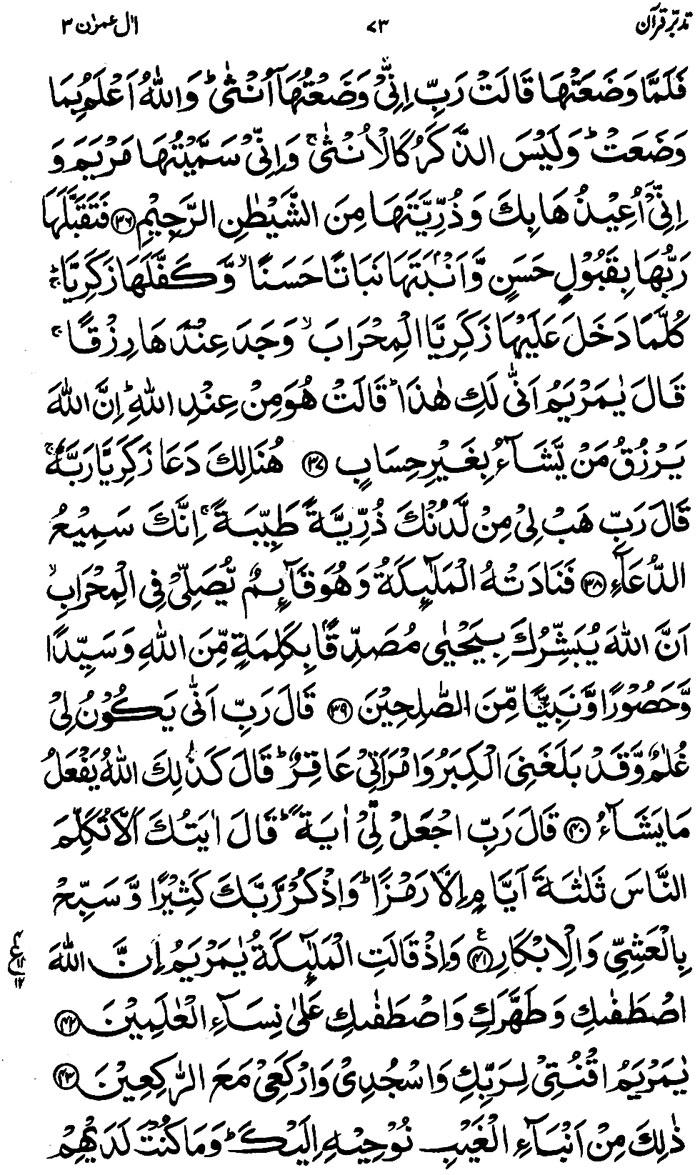 تدبّر قرآن ۷۳ اٰل عمرٰن ۳
فَلَمَّا وَضَعَتْهَا قَالَتْ رَبِّ اِنِّیْ وَضَعْتُهَاۤ اُنْثٰیؕ وَاللّٰهُ اَعْلَمُ بِمَا
وَضَعَتْؕ وَلَیْسَ الذَّكَرُ كَالْاُنْثٰیۚ وَاِنِّیْ سَمَّیْتُهَا مَرْیَمَ وَ
اِنِّیْۤ اُعِیْذُهَا بِكَ وَذُرِّیَّتَهَا مِنَ الشَّیْطٰنِ الرَّجِیْمِ ۳۶ فَتَقَبَّلَهَا
رَبُّهَا بِقَبُوْلٍ حَسَنٍ وَّاَنْۢبَتَهَا نَبَاتًا حَسَنًاۙ وَّكَفَّلَهَا زَكَرِیَّاؕۚ
كُلَّمَا دَخَلَ عَلَیْهَا زَكَرِیَّا الْمِحْرَابَۙ وَجَدَ عِنْدَهَا رِزْقًاۚ
قَالَ یٰمَرْیَمُ اَنّٰی لَكِ هٰذَاؕ قَالَتْ هُوَ مِنْ عِنْدِ اللّٰهِؕ اِنَّ اللّٰهَ
یَرْزُقُ مَنْ یَّشَآءُ بِغَیْرِ حِسَابٍ ۳۷ هُنَالِكَ دَعَا زَكَرِیَّا رَبَّهٗۚ
قَالَ رَبِّ هَبْ لِیْ مِنْ لَّدُنْكَ ذُرِّیَّةً طَیِّبَةًۚ اِنَّكَ سَمِیْعُ
الدُّعَآءِ ۳۸ فَنَادَتْهُ الْمَلٰٓئِكَةُ وَهُوَ قَآئِمٌ یُّصَلِّیْ فِی الْمِحْرَابِۙ
اَنَّ اللّٰهَ یُبَشِّرُكَ بِیَحْیٰی مُصَدِّقًۢا بِكَلِمَةٍ مِّنَ اللّٰهِ وَسَیِّدًا
وَّحَصُوْرًا وَّنَبِیًّا مِّنَ الصّٰلِحِیْنَ ۳۹ قَالَ رَبِّ اَنّٰی یَكُوْنُ لِیْ
غُلٰمٌ وَّقَدْ بَلَغَنِیَ الْكِبَرُ وَامْرَاَتِیْ عَاقِرٌؕ قَالَ كَذٰلِكَ اللّٰهُ یَفْعَلُ
مَا یَشَآءُ ۴۰ قَالَ رَبِّ اجْعَلْ لِّیْۤ اٰیَةًؕ قَالَ اٰیَتُكَ اَلَّا تُكَلِّمَ
النَّاسَ ثَلٰثَةَ اَیَّامٍ اِلَّا رَمْزًاؕ وَاذْكُرْ رَّبَّكَ كَثِیْرًا وَّسَبِّحْ
بِالْعَشِیِّ وَالْاِبْكَارِ ۴۱ وَاِذْ قَالَتِ الْمَلٰٓئِكَةُ یٰمَرْیَمُ اِنَّ اللّٰهَ
اصْطَفٰىكِ وَطَهَّرَكِ وَاصْطَفٰىكِ عَلٰی نِسَآءِ الْعٰلَمِیْنَ ۴۲
یٰمَرْیَمُ اقْنُتِیْ لِرَبِّكِ وَاسْجُدِیْ وَارْكَعِیْ مَعَ الرّٰكِعِیْنَ ۴۳
ذٰلِكَ مِنْ اَنْۢبَآءِ الْغَیْبِ نُوْحِیْهِ اِلَیْكَؕ وَمَا كُنْتَ لَدَیْهِمْ